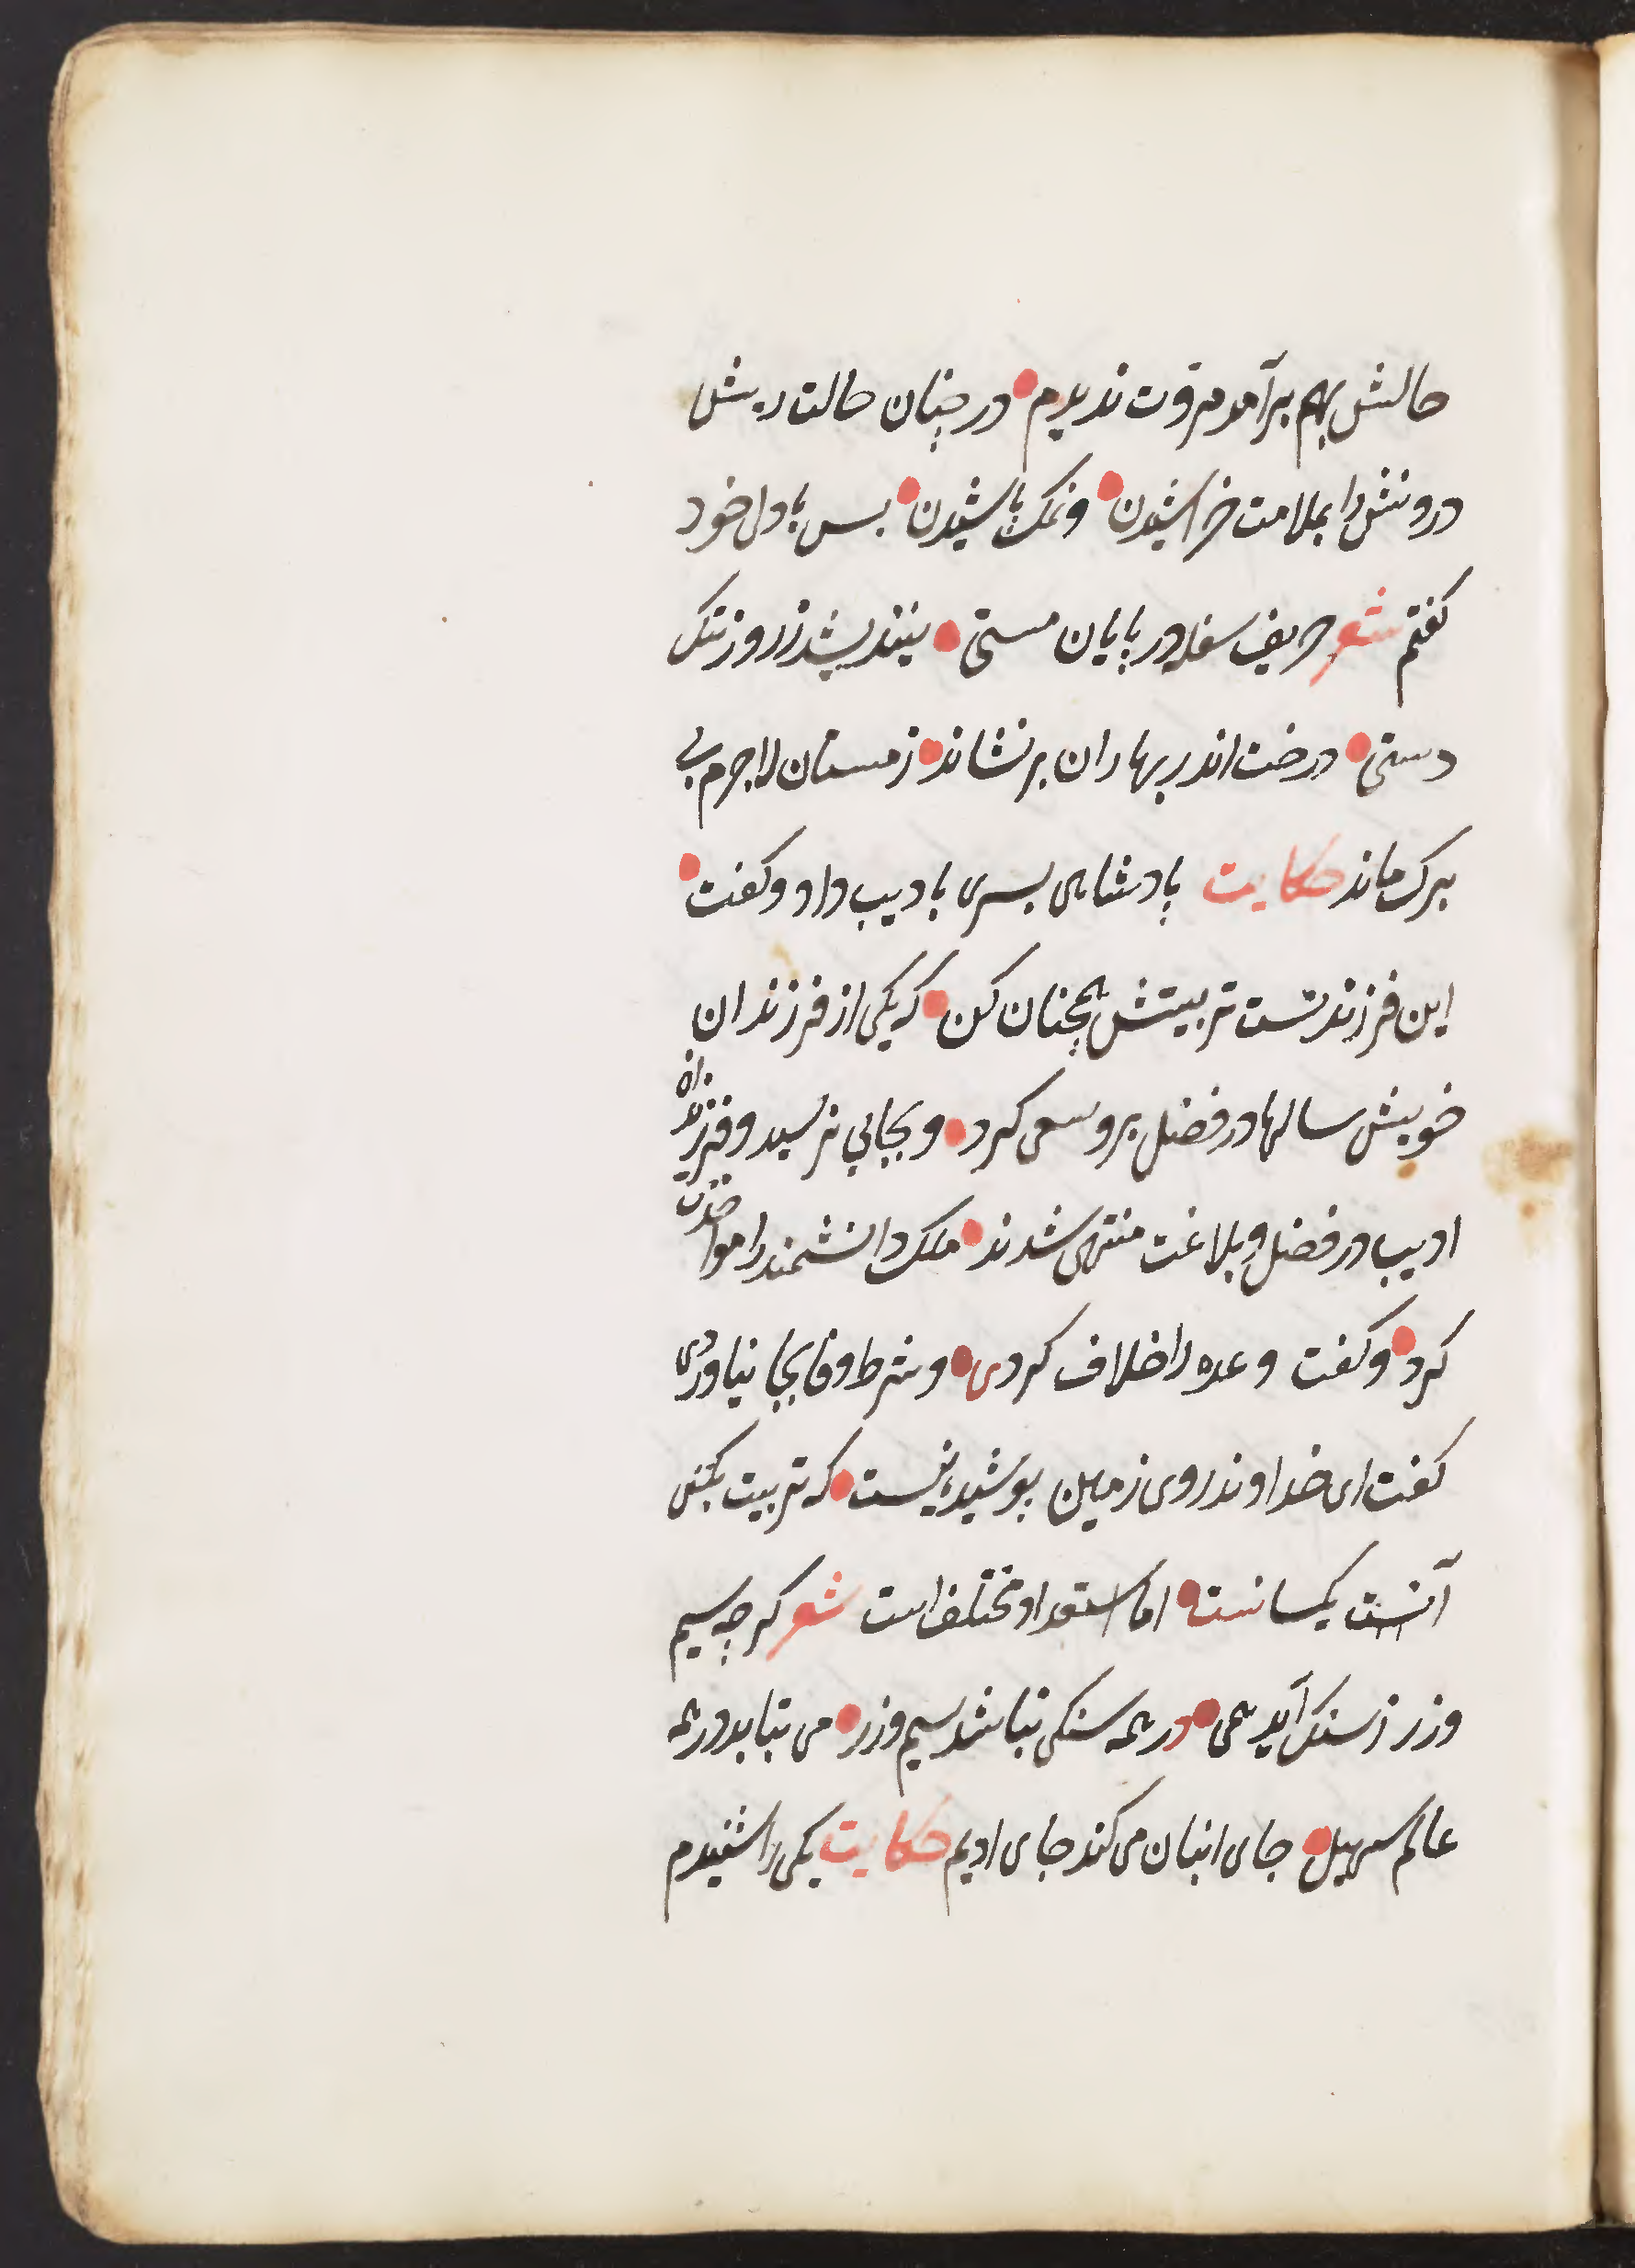 حالش بهم برآمد مروت ندیدم در چنان حالت ریش
درونش را بملامت خراشیدن ونمک پاشیدن بس با دل خود
کفتم شعر حریف سفله در پایان مستی نیندیشد ز روز تنک
دستی درخت اندر بهاران برفشاند زمستان لاجرم بی
برک ماند حکایت پادشاهی پسری بادیب داد وکفت
این فرزند تست تربیتش همچنان کن که یکی از فرزندان
خویش سالها در فضل برو سعی کرد وبجایی نرسید وفرزندان
ادیب در فضل وبلاغت منتهی شدند ملک دانشمند را مواخذت
کرد وکفت وعده را خلاف کردی وشرط وفا بجا نیاوردی
کفت ای خداوند روی زمین پوشیده نیست که تربیت بکنی
آنست یکسانست اما استعداد مختلف است شعر کرچه سیم
وزر ز سنک آید همی در همه سنکی نباشد سیم وزر می بتابد در همه
عالم سهیل جای انبان می کند جای ادیم حکایت یکی را شنیدم